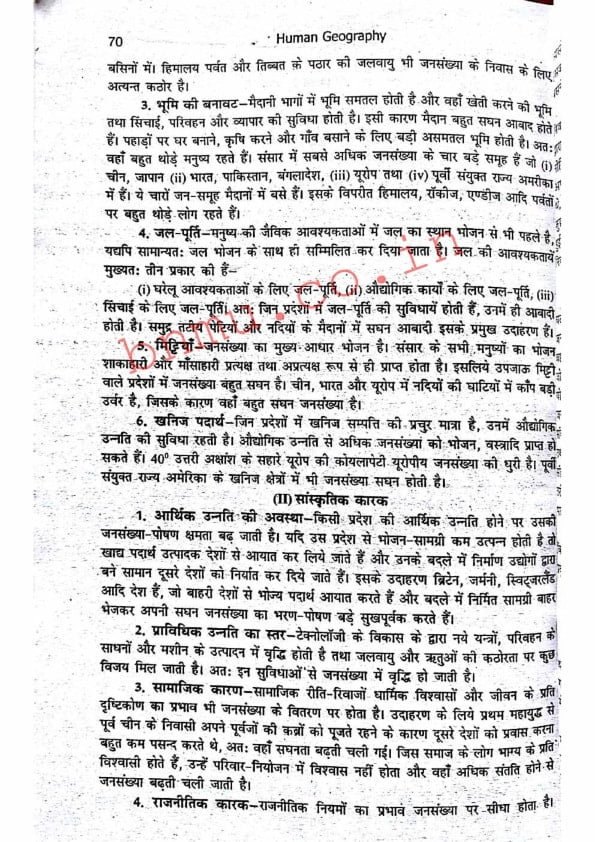 70
Human Geography
बसिनों में। हिमालय पर्वत और तिब्बत के पठार की जलवायु भी जनसंख्या के निवास के लिए
अत्यन्त कठोर है।
3. भूमि की बनावट–मैदानी भागों में भूमि समतल होती है और वहाँ खेती करने की भूमि
तथा सिंचाई, परिवहन और व्यापार की सुविधा होती है। इसी कारण मैदान बहुत सघन आबाद होते
हैं। पहाड़ों पर घर बनाने, कृषि करने और गाँव बसाने के लिए बड़ी असमतल भूमि होती है। अतः
वहाँ बहुत थोड़े मनुष्य रहते हैं। संसार में सबसे अधिक जनसंख्या के चार बड़े समूह हैं जो (i)
चीन, जापान (ii) भारत, पाकिस्तान, बंगलादेश, (iii) यूरोप तथा (iv) पूर्वी संयुक्त राज्य अमरीका
में हैं। ये चारों जन-समूह मैदानों में बसे हैं। इसके विपरीत हिमालय, रॉकीज, एण्डीज आदि पर्वतों
पर बहुत थोड़े लोग रहते हैं।
4. जल-पूर्ति–मनुष्य की जैविक आवश्यकताओं में जल का स्थान भोजन से भी पहले है,
यद्यपि सामान्यतः जल भोजन के साथ ही सम्मिलित कर दिया जाता है। जल की आवश्यकतायें
मुख्यतः तीन प्रकार की हैं–
(i) घरेलू आवश्यकताओं के लिए जल-पूर्ति, (ii) औद्योगिक कार्यों के लिए जल-पूर्ति, (iii)
सिंचाई के लिए जल-पूर्ति। अतः जिन प्रदेशों में जल-पूर्ति की सुविधायें होती हैं, उनमें ही आबादी
होती है। समुद्र तटीय पेटियाँ और नदियों के मैदानों में सघन आबादी इसके प्रमुख उदाहरण हैं।
5. मिट्टियाँ–जनसंख्या का मुख्य आधार भोजन है। संसार के सभी मनुष्यों का भोजन
शाकाहारी और माँसाहारी प्रत्यक्ष तथा अप्रत्यक्ष रूप से ही प्राप्त होता है। इसलिये उपजाऊ मिट्टी
वाले प्रदेशों में जनसंख्या बहुत सघन है। चीन, भारत और यूरोप में नदियों की घाटियों में काँप बड़ी
उर्वर है, जिसके कारण वहाँ बहुत सघन जनसंख्या है।
6. खनिज पदार्थ–जिन प्रदेशों में खनिज सम्पत्ति की प्रचुर मात्रा है, उनमें औद्योगिक
उन्नति की सुविधा रहती है। औद्योगिक उन्नति से अधिक जनसंख्या को भोजन, वस्त्रादि प्राप्त हो
सकते हैं। 40° उत्तरी अक्षांश के सहारे यूरोप की कोयलापेटी यूरोपीय जनसंख्या की धुरी है। पूर्वी
संयुक्त राज्य अमेरिका के खनिज क्षेत्रों में भी जनसंख्या सघन होती है।
(II) सांस्कृतिक कारक
1. आर्थिक उन्नति की अवस्था–किसी प्रदेश की आर्थिक उन्नति होने पर उसकी
जनसंख्या-पोषण क्षमता बढ़ जाती है। यदि उस प्रदेश से भोजन-सामग्री कम उत्पन्न होती है तो
खाद्य पदार्थ उत्पादक देशों से आयात कर लिये जाते हैं और उनके बदले में निर्माण उद्योगों द्वारा
बने सामान दूसरे देशों को निर्यात कर दिये जाते हैं। इसके उदाहरण ब्रिटेन, जर्मनी, स्विट्जरलैंड
आदि देश हैं, जो बाहरी देशों से भोज्य पदार्थ आयात करते हैं और बदले में निर्मित सामग्री बाहर
भेजकर अपनी सघन जनसंख्या का भरण-पोषण बड़े सुखपूर्वक करते हैं।
2. प्राविधिक उन्नति का स्तर–टेक्नोलॉजी के विकास के द्वारा नये यन्त्रों, परिवहन के
साधनों और मशीन के उत्पादन में वृद्धि होती है तथा जलवायु और ऋतुओं की कठोरता पर कुछ
विजय मिल जाती है। अतः इन सुविधाओं से जनसंख्या में वृद्धि हो जाती है।
3. सामाजिक कारण–सामाजिक रीति-रिवाजों धार्मिक विश्वासों और जीवन के प्रति
दृष्टिकोण का प्रभाव भी जनसंख्या के वितरण पर होता है। उदाहरण के लिये प्रथम महायुद्ध से
पूर्व चीन के निवासी अपने पूर्वजों की कब्रों को पूजते रहने के कारण दूसरे देशों को प्रवास करना
बहुत कम पसन्द करते थे, अतः वहाँ सघनता बढ़ती चली गई। जिस समाज के लोग भाग्य के प्रति
विश्वासी होते हैं, उन्हें परिवार-नियोजन में विश्वास नहीं होता और वहाँ अधिक संतति होने से
जनसंख्या बढ़ती चली जाती है।
4. राजनीतिक कारक–राजनीतिक नियमों का प्रभाव जनसंख्या पर सीधा होता है।
bnmu.co.in